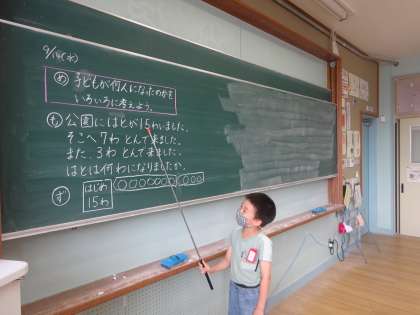 9/14(水)
め 子どもが何人になったのかを
いろいろに考えよう。
も 公園にはとが15わいました。
そこへ7わ とんで来ました。
また、3わ とんで来ました。
はとは何わになりましたか
ず はじめ
15わ